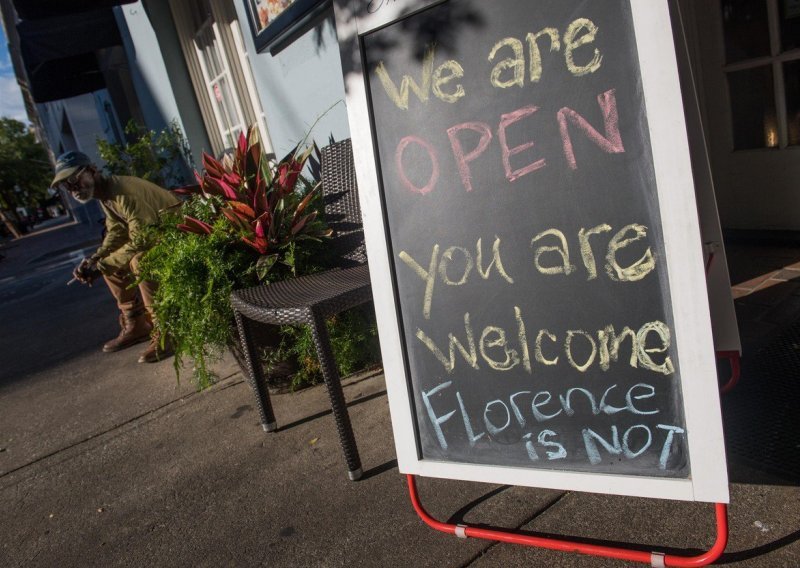 We are
OPEN
you are
Welcome
Florence
is NOT